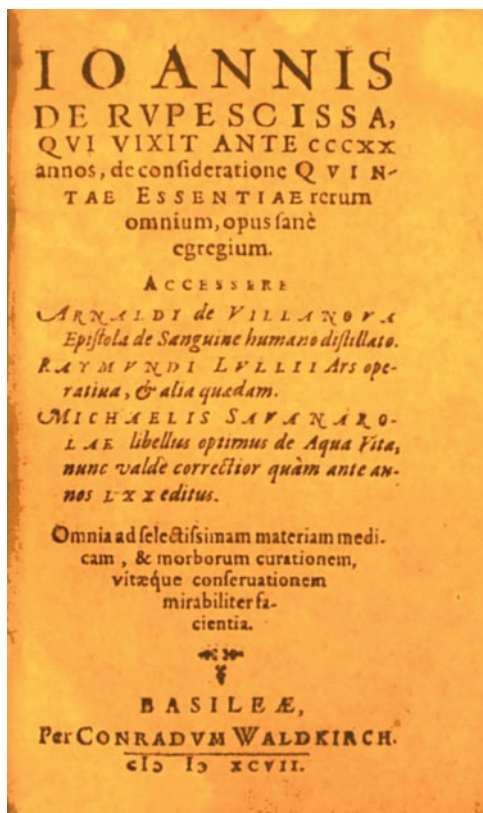 IOANNIS
DE RVPESCISSA,
QVI VIXIT ANTE CCCXX
annos, de conſideratione QVIN-
TAE ESSENTIAE rerum
omnium, opus ſanè
egregium.
ACCESSERE
ARNALDI de VILLANOVA
Epiſtola de Sanguine humano diſtillato.
RAYMVNDI LVLLII Ars ope-
ratiua, & alia quædam.
MICHAELIS SAVANARO-
LAE libellus optimus de Aqua Vitæ,
nunc valdè correctior quàm ante an-
nos LXX editus.
Omnia ad ſelectiſsimam materiam medi-
cam, & morborum curationem,
vitæque conſeruationem
mirabiliter fa-
cientia.
BASILEÆ,
Per CONRADVM WALDKIRCH.
cIↄ Iↄ XCVII.